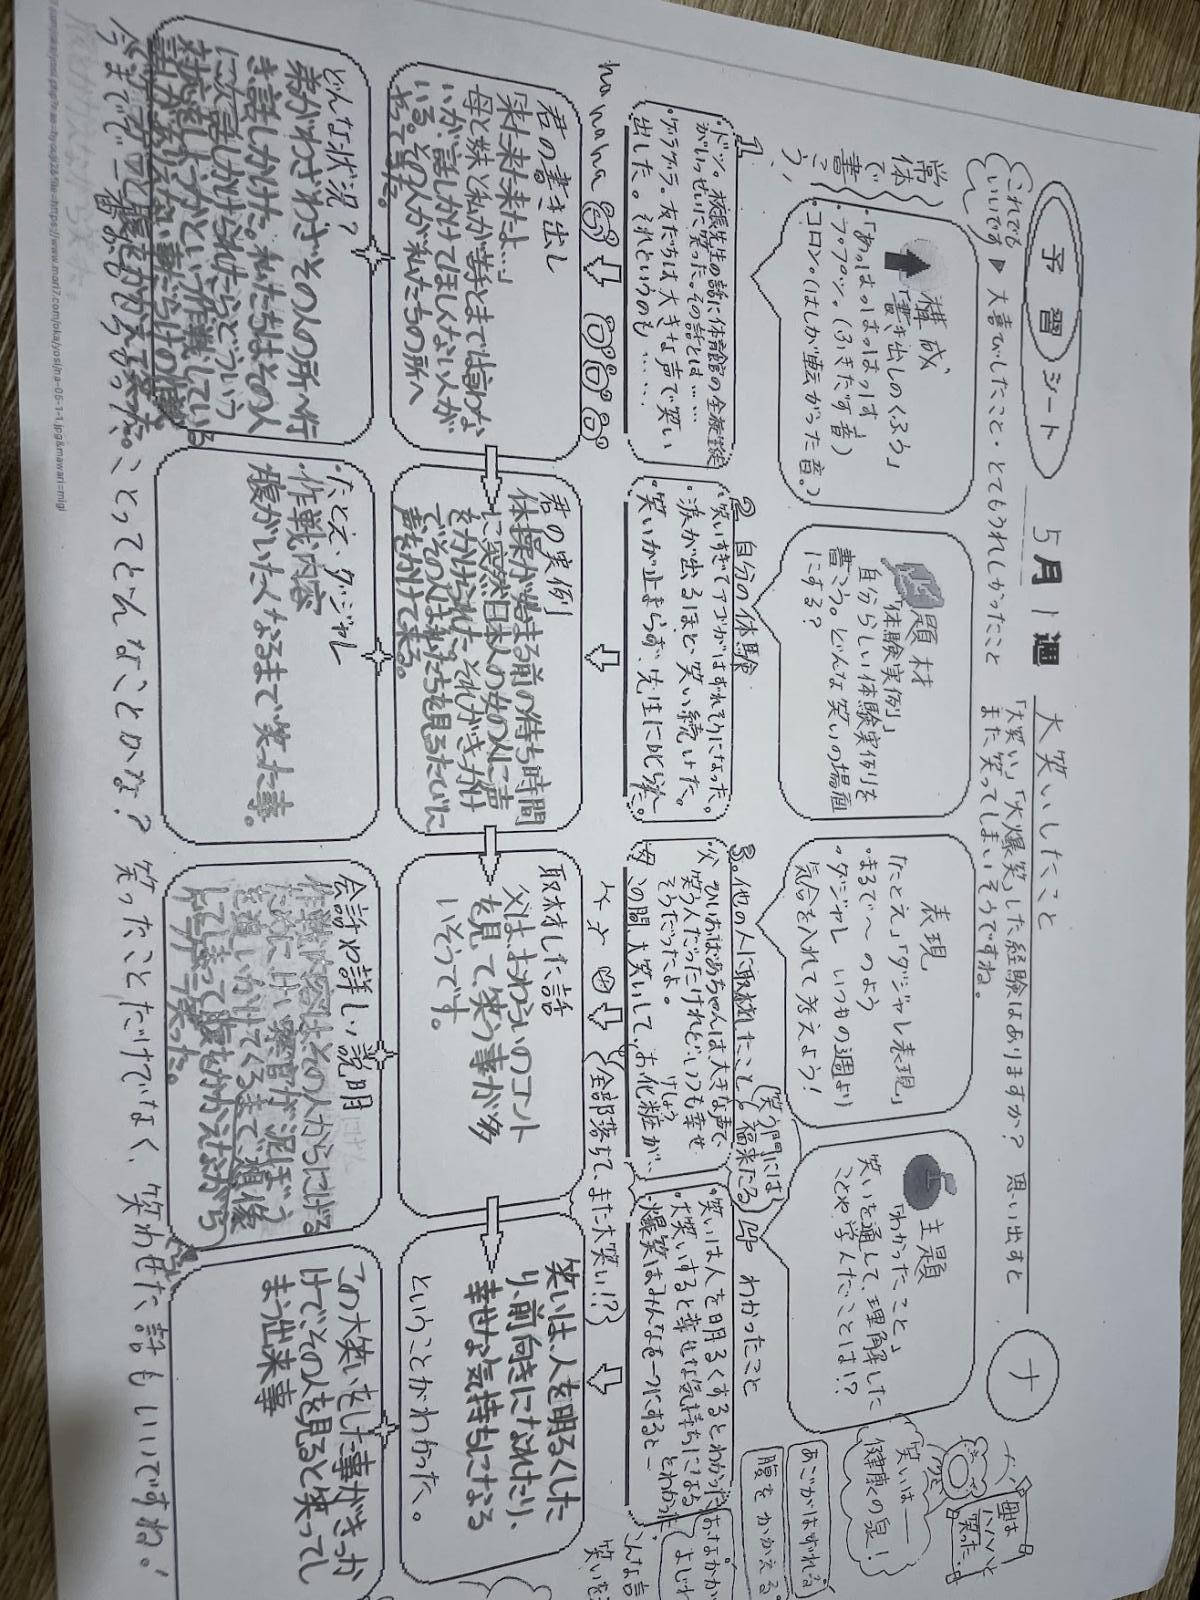 予習シート 5月1週 大笑いしたこと ナ
これでもいいです▶大喜びしたこと・とてもうれしかったこと
「大笑い」「大爆笑」した経験はありますか? 思い出すと
また笑ってしまいそうですね。
母は
ハハハと
笑った。
構成
「書き出しのくふう」
・「あっはっはっはっは
・ラプップッ。(ふきだす音)
・コロン。(はしが転がった音。)
常体で書こう
題材
「体験実例」
自分らしい体験実例を
書こう。どんな笑いの場面
にする?
表現
「たとえ」「ダジャレ表現」
・まるで〜のよう
・ダジャレ いつもの週より
気合を入れて考えよう!
主題
「わかったこと」
笑いを通して、理解した
ことや学んだことは!?
笑いは
健康の泉!
1
・ドッ。校長先生の話に体育館の全校生徒
がいっせいに笑った。その話とは……
・ゲラゲラ。友だちは大きな声で笑い
出した。それというのも……
2 自分の体験
・笑いすぎてアゴがはずれそうになった。
・涙が出るほど笑い続けた。
・笑いが止まらず、先生に叱られた。
3。他の人に取材したこと
・父 ひいおばあちゃんは大きな声で
笑う人だったけれど、いつも幸せ
そうだったよ。
母 この間、大笑いして、お化粧が、
けしょう
全部落ちて、また大笑い!?
笑う門には
福来たる
4 わかったこと
・笑いは人を明るくするとわかった
・大笑いすると幸せな気持ちになる
・爆笑はみんなを一つにすると―とわかった
あごがはずれる
腹をかかえる
おなかが
よじれ
こんな言
笑いを
hahaha
君の書き出し
「来た来た来たよ…」
母と妹と私が苦手とまでは言わな
いが、話しかけてほしくない人が
いる。その人が私たちの所へ
やって来た。
君の実例
体操が始まる前の待ち時間
に突然日本人の女の人に声
をかけられた。それがきっかけ
でその人は私たちを見るたびに
声をかけて来る。
取材した話
父はよおわらいのコント
を見て、笑う事が多
いそうです。
笑いは、人を明るくした
り、前向きになれたり、
幸せな気持ちになる
ということがわかった。
どんな状況?
弟がわざわざその人の所へ行
き話しかけた。私たちはその人
に次話しかけられたらどういう
対応をしようかという作戦している
今までで一番おなかをかかえて笑った。
たとえ・ダジャレ
・作戦内容
腹がいたくなるまで笑った事。
会話や詳しい説明
作戦内容はその人からにげる
ために、けい察官が泥ぼう
を追いかけてくるまで想像
してしまって腹をかかえながら
大笑った。
この大笑いをした事がきっか
けでその人を見ると笑ってし
まう出来事
ことってどんなことかな? 笑ったことだけでなく、笑わせた話もいいですね!